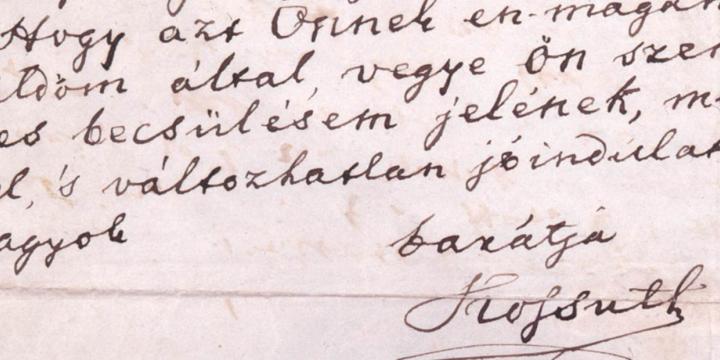 Hogy azt Önnek én magam
ldöm által, vegye Ön szem
es becsülésem jelének, m
l, 's változhatlan jóindulat
agyok barátja
Kossuth